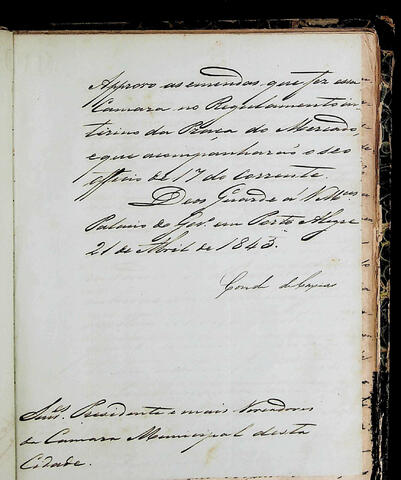 Approvo as emendas que fez essa
Camara no Regulamento in-
terino da Praça do Mercado,
e que acompanharaõ o seo
officio de 17 do corrente.
Deos Guarde á V. M.ces
Palacio do Gov.º em Porto Alegre
21 de Abril de 1843.
Conde de Caxias
Snr.es Presidente e mais Vereadores
da Camara Municipal desta
Cidade.